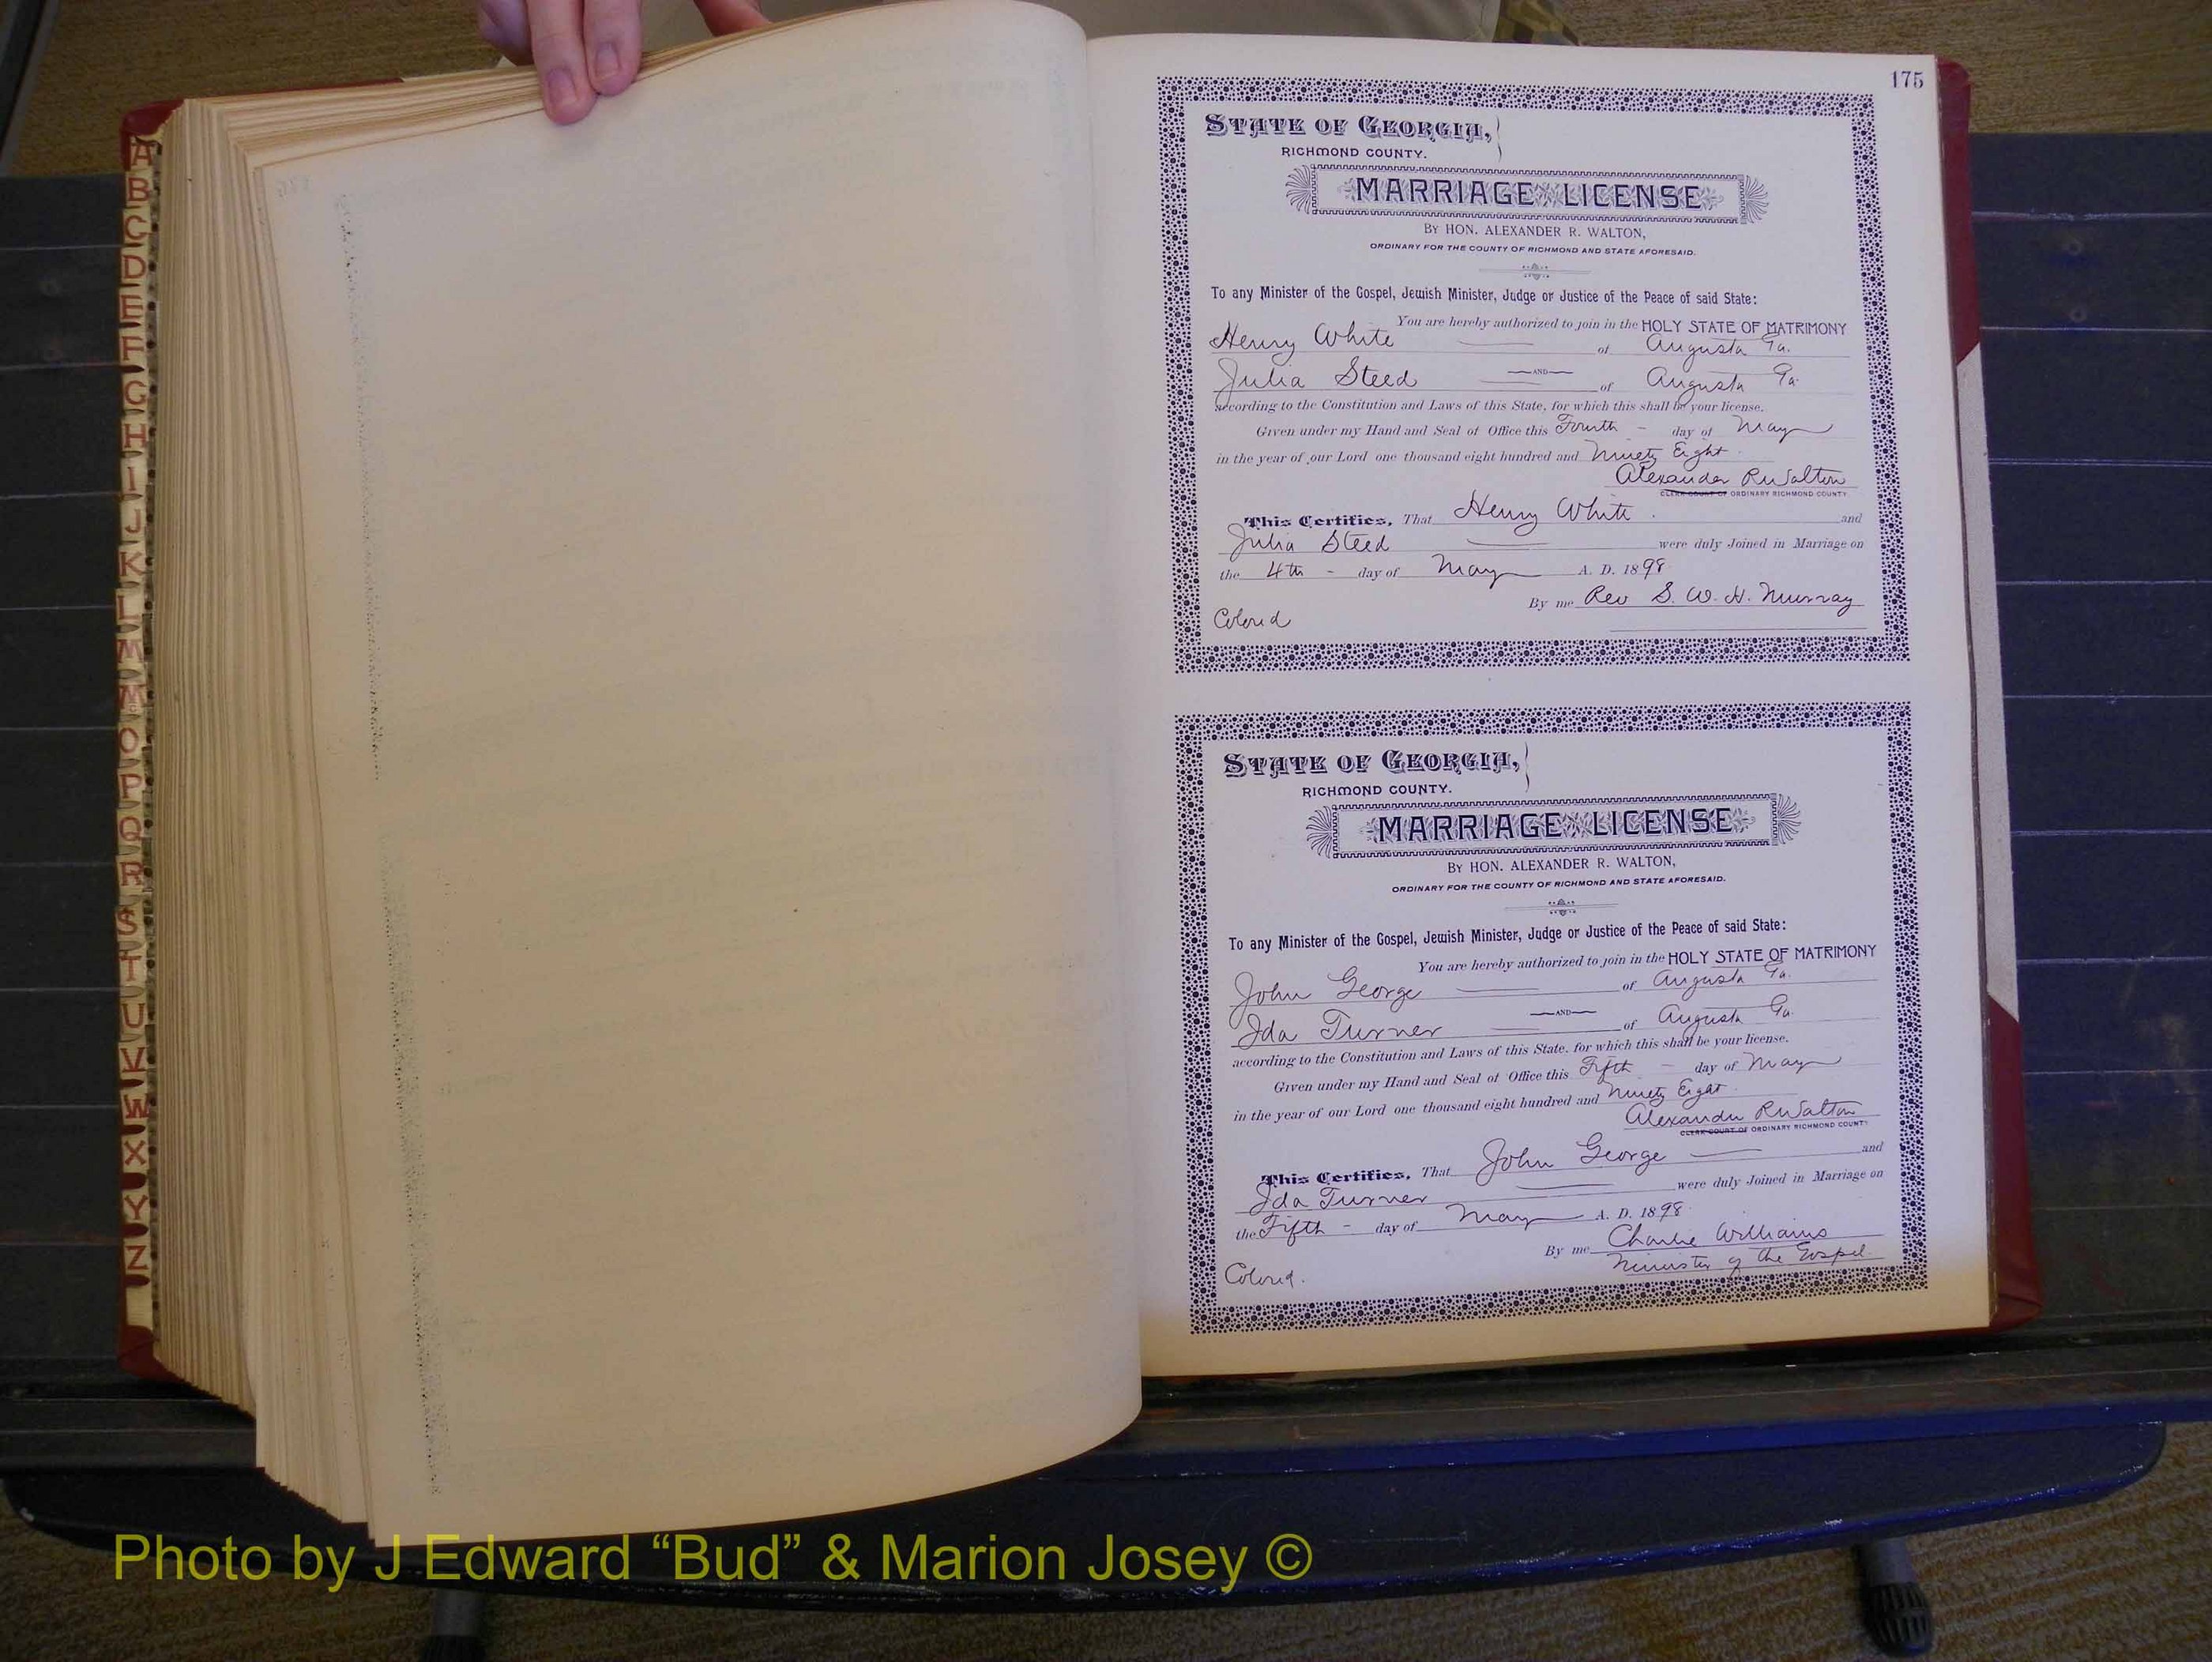 175
STATE OF GEORGIA,
RICHMOND COUNTY.
MARRIAGE LICENSE
BY HON. ALEXANDER R. WALTON,
ORDINARY FOR THE COUNTY OF RICHMOND AND STATE AFORESAID.
To any Minister of the Gospel, Jewish Minister, Judge or Justice of the Peace of said State:
You are hereby authorized to join in the HOLY STATE OF MATRIMONY
Henry White of Augusta Ga.
AND
Julia Steed of Augusta Ga.
according to the Constitution and Laws of this State, for which this shall be your license.
Given under my Hand and Seal of Office this Fourth - day of May
in the year of our Lord one thousand eight hundred and Ninety Eight.
Alexander R Walton
CLERK COURT OF ORDINARY RICHMOND COUNTY.
This Certifies, That Henry White and
Julia Steed were duly Joined in Marriage on
the 4th - day of May A. D. 1898
By me Rev S. W. H. Murray
Colored
STATE OF GEORGIA,
RICHMOND COUNTY.
MARRIAGE LICENSE
BY HON. ALEXANDER R. WALTON,
ORDINARY FOR THE COUNTY OF RICHMOND AND STATE AFORESAID.
To any Minister of the Gospel, Jewish Minister, Judge or Justice of the Peace of said State:
You are hereby authorized to join in the HOLY STATE OF MATRIMONY
John George of Augusta Ga.
AND
Ida Turner of Augusta Ga.
according to the Constitution and Laws of this State, for which this shall be your license.
Given under my Hand and Seal of Office this Fifth - day of May
in the year of our Lord one thousand eight hundred and Ninety Eight.
Alexander R Walton
CLERK COURT OF ORDINARY RICHMOND COUNTY
This Certifies, That John George and
Ida Turner were duly Joined in Marriage on
the Fifth - day of May A. D. 1898
By me Charlie Williams
Minister of the Gospel.
Colored.
A
B
C
D
E
F
G
H
I
J
K
L
M
Mc
O
P
Q
R
S
T
U
V
W
X
Y
Z
Photo by J Edward “Bud” & Marion Josey ©